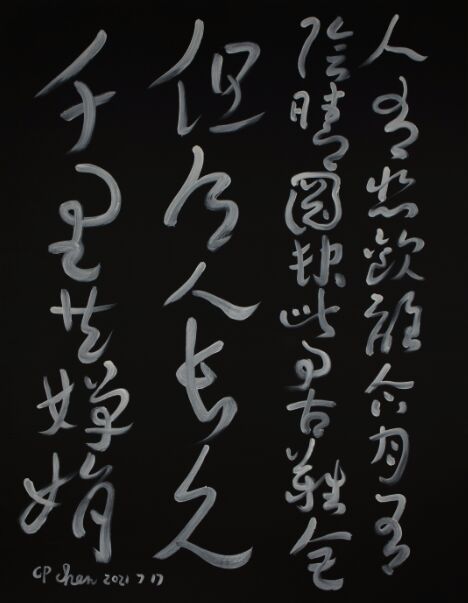 人有悲歡離合月有
陰晴圓缺此事古難全
但願人長久
千里共嬋娟
CP Chen 2021 7 17